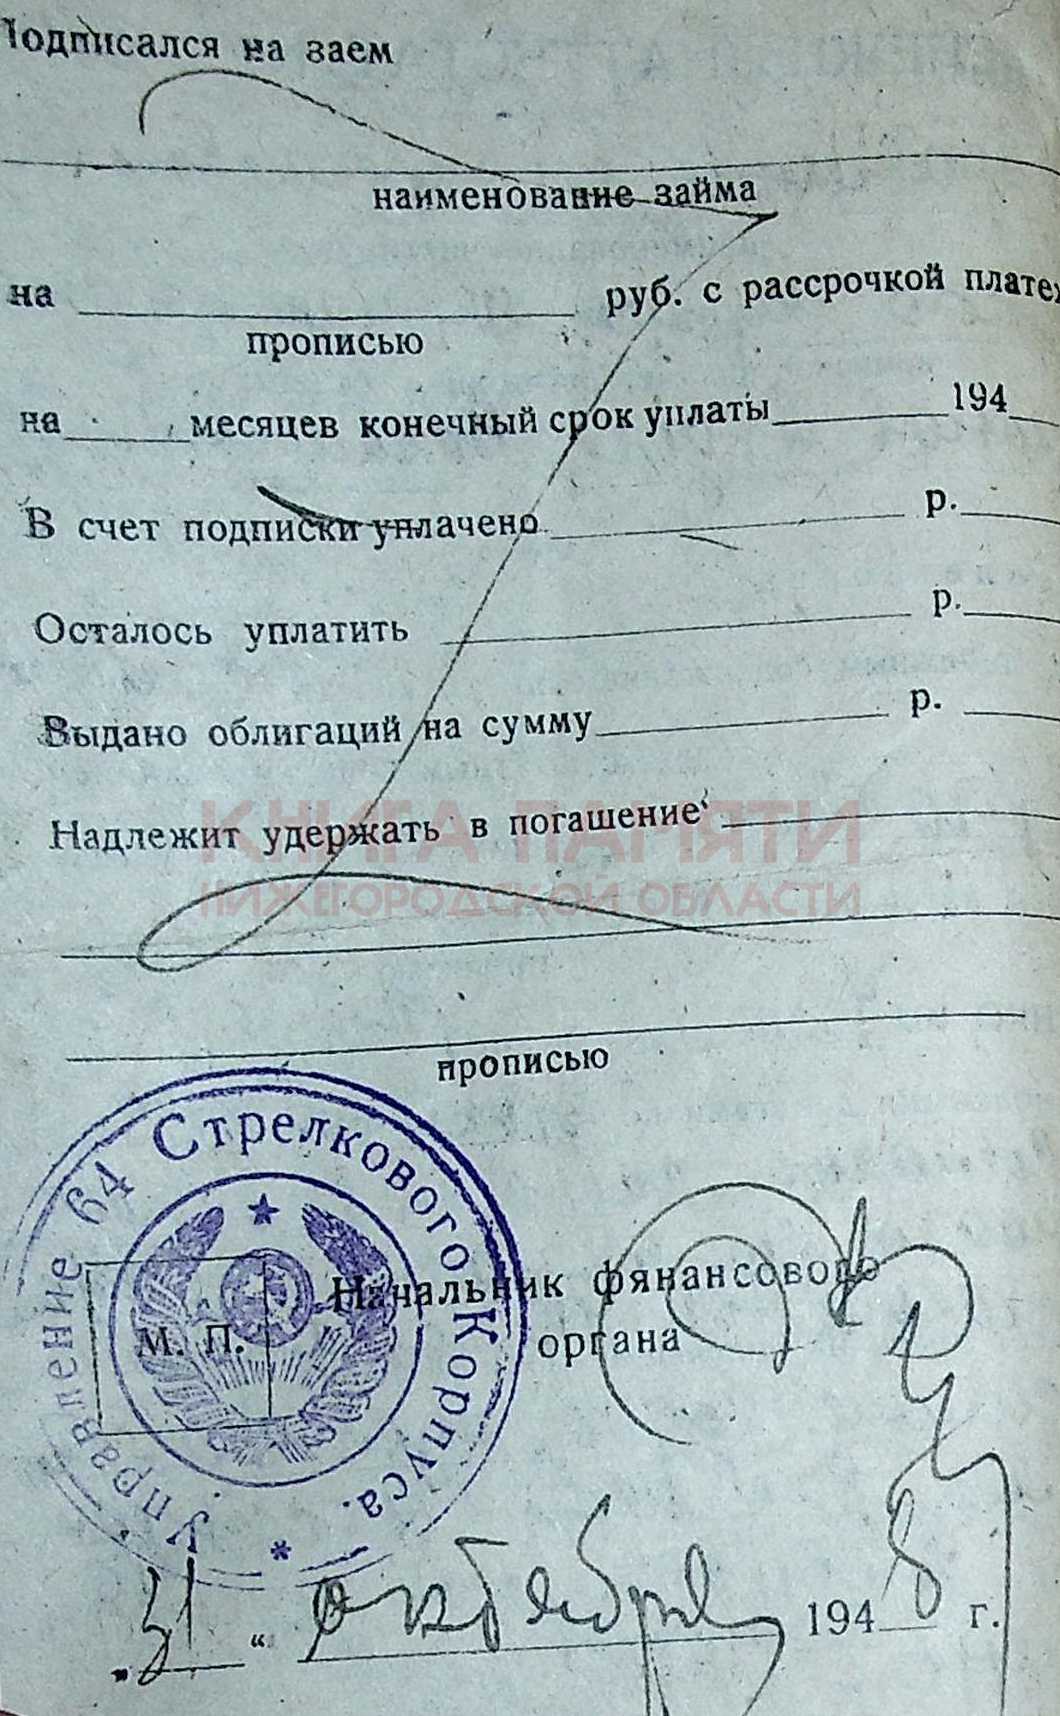 Подписался на заем
наименование займа
на руб. с рассрочкой платеж
прописью
на месяцев конечный срок уплаты 194
В счет подписки уплачено р.
Осталось уплатить р.
Выдано облигаций на сумму р.
Надлежит удержать в погашение
КНИГА ПАМЯТИ
НИЖЕГОРОДСКОЙ ОБЛАСТИ
прописью
Управление 64 Стрелкового Корпуса.
Начальник фянансового
органа
М. П.
„31“ октября 1948 г.